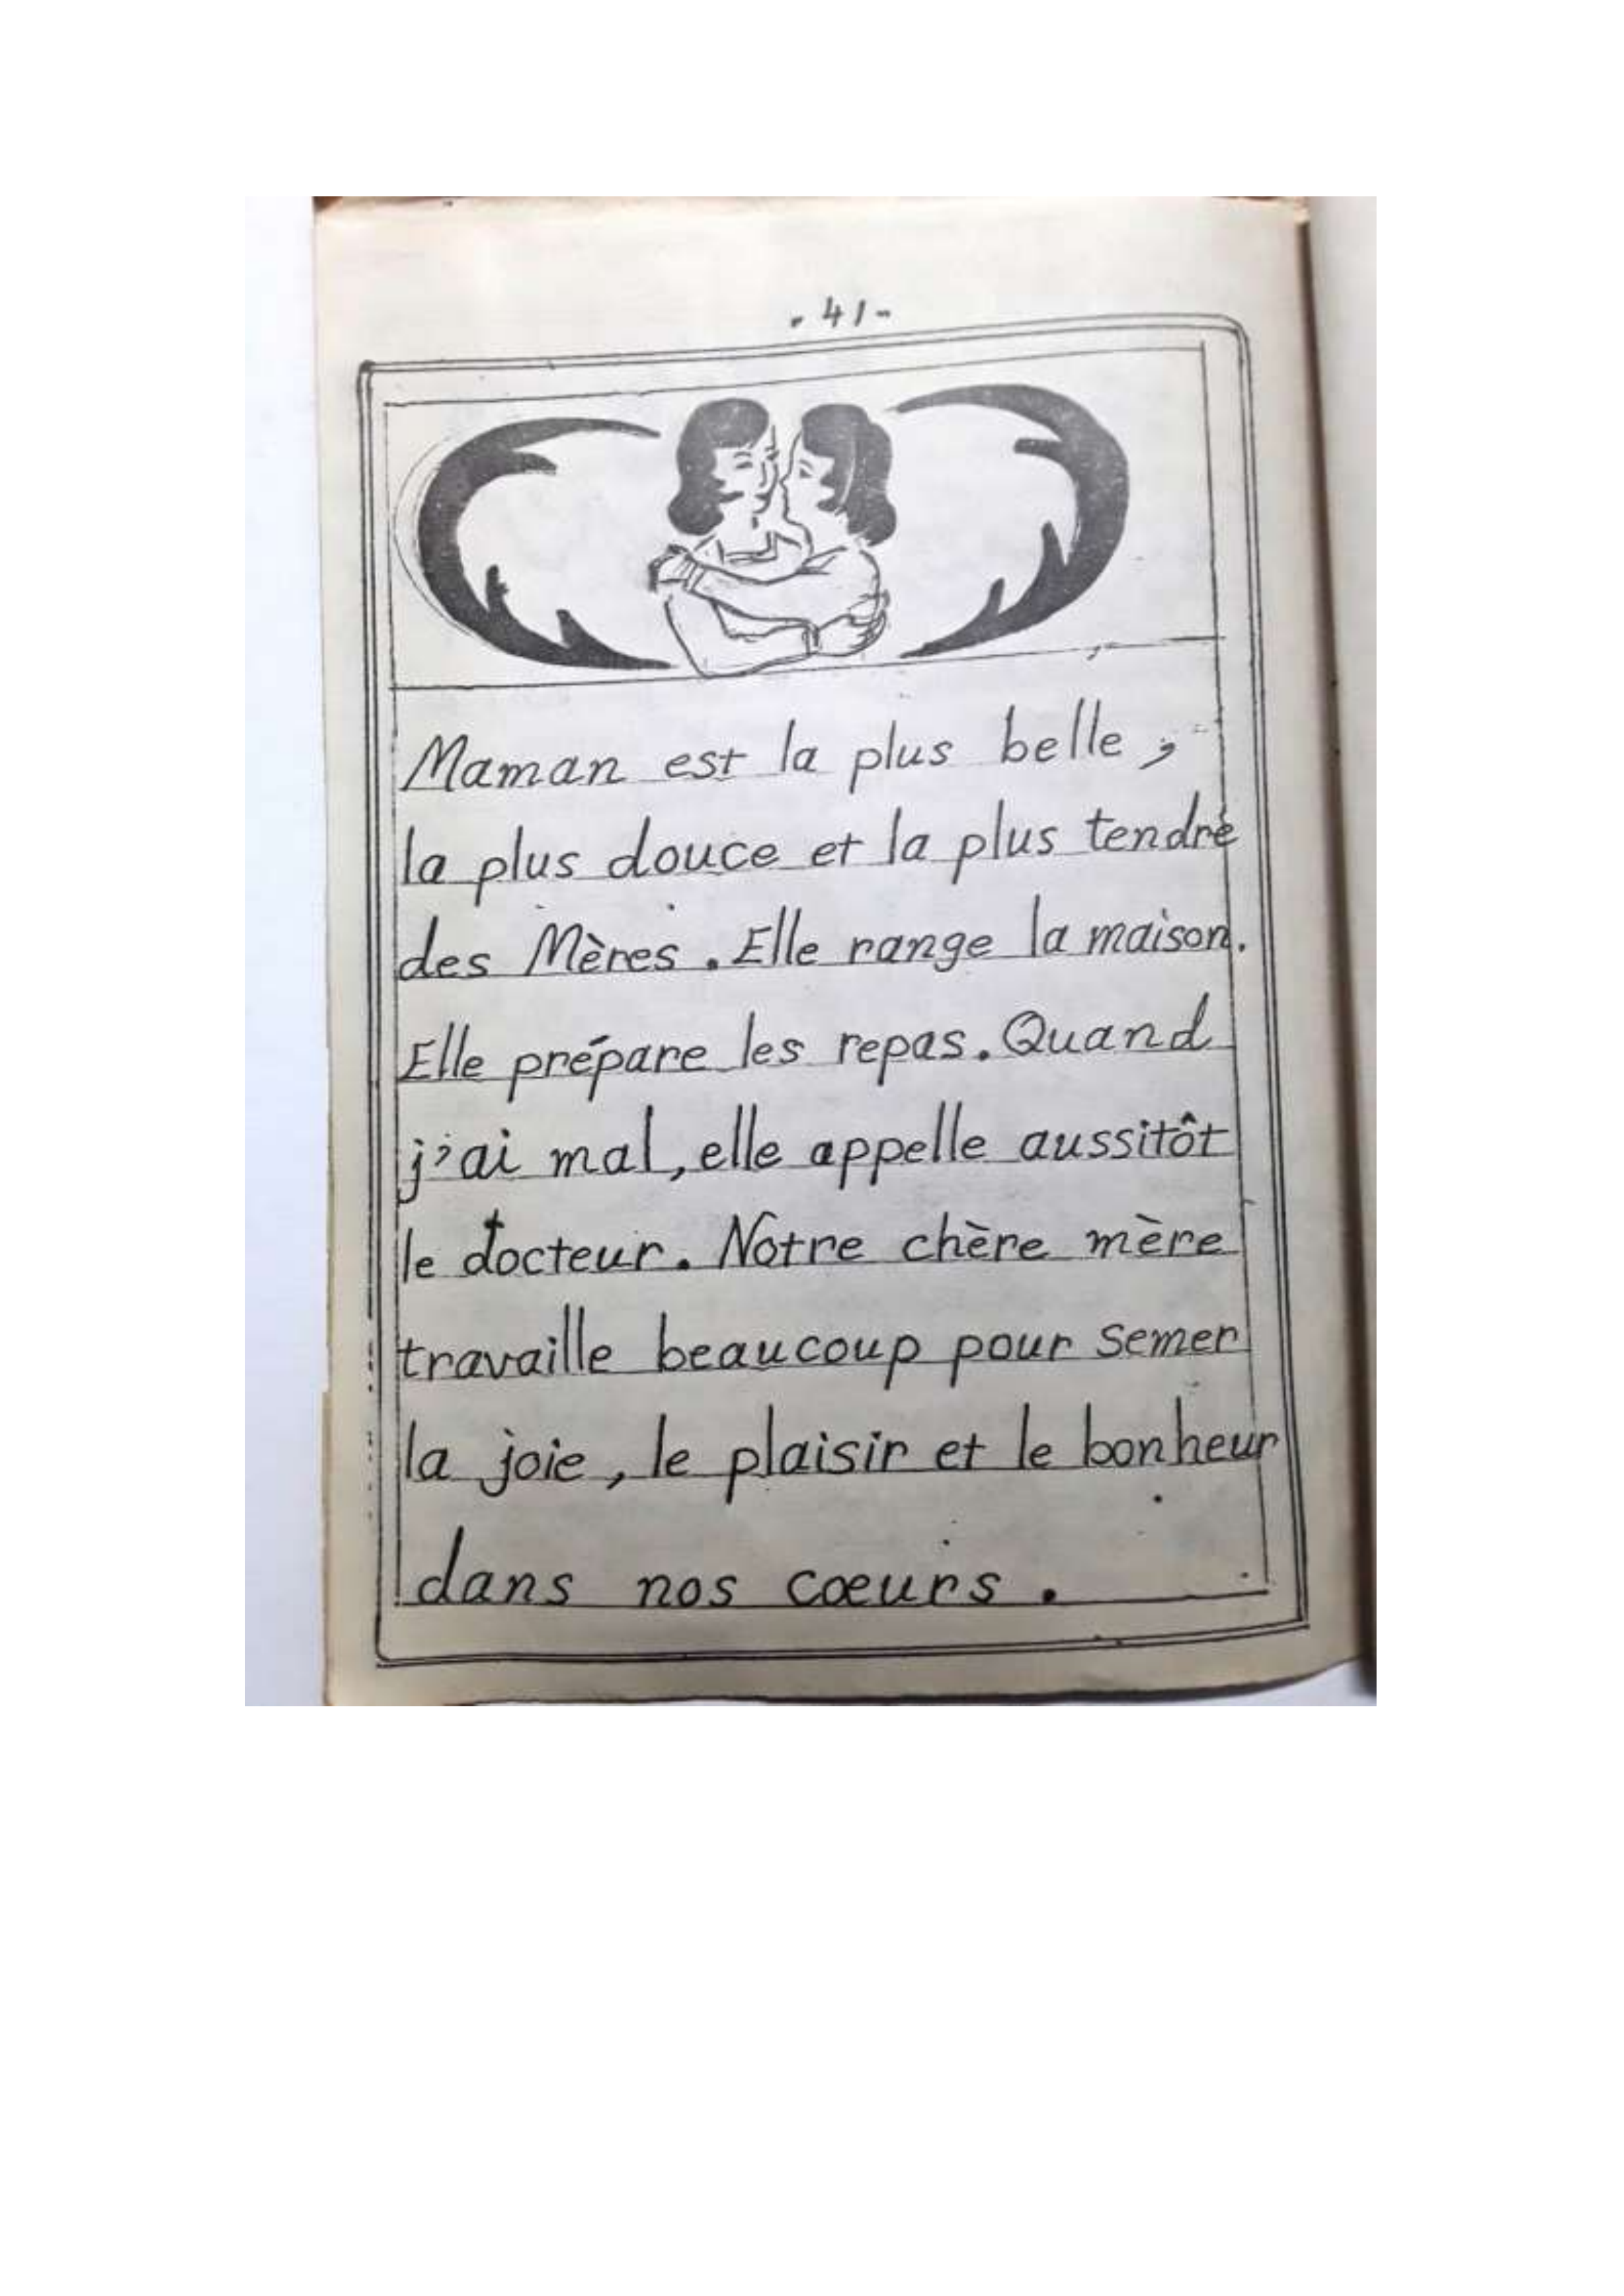 - 41 -
Maman est la plus belle,
la plus douce et la plus tendre
des Mères. Elle range la maison.
Elle prépare les repas. Quand
j'ai mal, elle appelle aussitôt
le docteur. Notre chère mère
travaille beaucoup pour semer
la joie, le plaisir et le bonheur
dans nos cœurs.